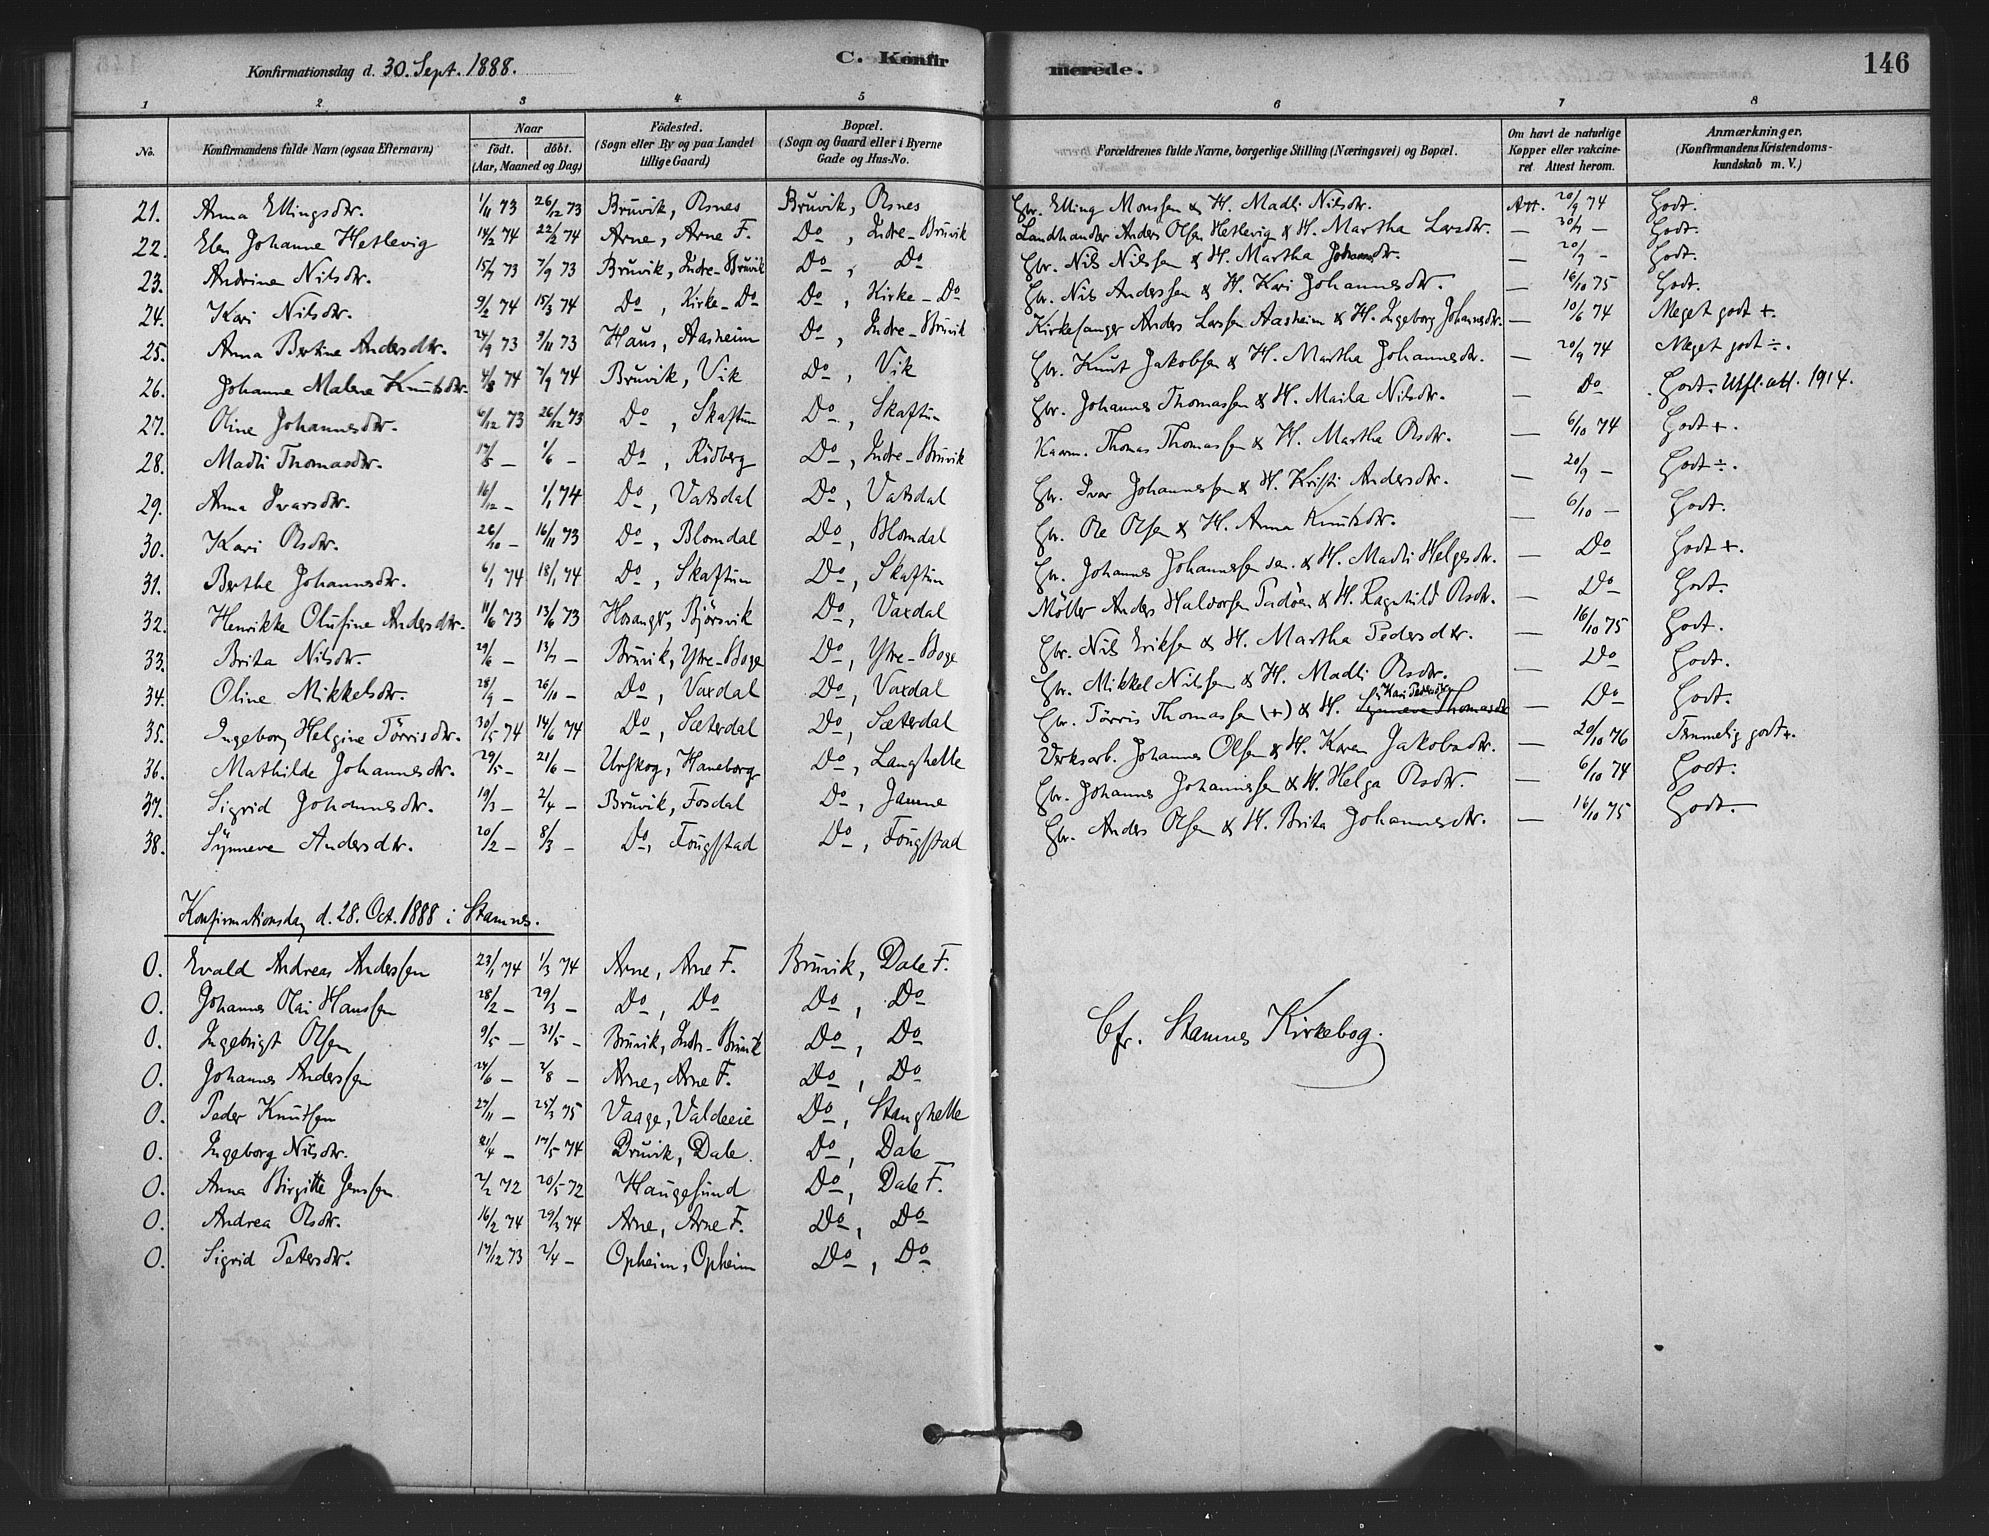 Konfirmationsdag d. 30. Sept. 1888. C. Konfirmerede. 146
1 2 3 4 5 6 7 8
No. Konfirmandens fulde Navn (ogsaa Efternavn) Naar født, døbt. (Aar, Maaned og Dag) Fødested. (Sogn eller By og paa Landet tillige Gaard) Bopæl. (Sogn og Gaard eller i Byerne Gade og Hus-No. Forældrenes fulde Navne, borgerlige Stilling (Næringsvei) og Bopæl. Om havt de naturlige Kopper eller vakcineret Attest herom. Anmærkninger. (Konfirmandens Kristendomskundskab m. V.)
21. Anna Ellingsdtr. 1/11 73 26/12 73 Bruvik, Rsnes Bruvik, Rsnes Gbr. Elling Monssen & H. Madli Nilsdtr. Att. 20/9 74 Godt.
22. Elen Johanne Hetlevig 14/2 74 22/2 74 Arne, Arne F. Do, Indre-Bruvik Landhandler Anders Olsen Hetlevig & H. Martha Larsdtr. — 30/9 — Godt.
23. Andrine Nilsdtr. 15/7 73 7/9 73 Bruvik, Indre-Bruvik Do, Do Gbr. Nils Nilssen & H. Martha Johannesdtr. — 20/9 — Godt.
24. Kari Nilsdtr. 9/2 74 15/3 74 Do, Kirke-Do Do, Kirke-Do Gbr. Nils Anderssen & H. Kari Johannesdtr. — 16/10 75 Godt.
25. Anna Bertine Andersdtr. 24/9 73 9/11 73 Haus, Aasheim Do, Indre-Bruvik Kirkesanger Anders Larsen Aasheim & H. Ingeborg Johannesdtr. — 10/6 74 Meget godt +.
26. Johanne Malene Knutsdtr. 4/8 74 7/9 74 Bruvik, Vik Do, Vik Gbr. Knut Jakobsen & H. Martha Johannesdtr. — 20/9 74 Meget godt ÷.
27. Oline Johannesdtr. 6/12 73 26/12 73 Do, Skaftun Do, Skaftun Gbr. Johannes Thomassen & H. Maila Nilsdtr. — Do Godt. Utfl. att. 1914.
28. Madli Thomasdtr. 17/5 — 1/6 — Do, Rödberg Do, Indre-Bruvik Kaarm. Thomas Thomassen & H. Martha Olsdtr. — 6/10 74 Godt +.
29. Anna Ivarsdtr. 16/12 — 1/1 74 Do, Vatsdal Do, Vatsdal Gbr. Ivar Johannessen & H. Kristi Andersdtr. — 20/9 — Godt ÷.
30. Kari Olsdtr. 26/10 — 16/11 73 Do, Blomdal Do, Blomdal Gbr. Ole Olsen & H. Anna Knutsdtr. — 6/10 — Godt.
31. Berthe Johannesdtr. 6/1 74 18/1 74 Do, Skaftun Do, Skaftun Gbr. Johannes Johannessen sen. & H. Madli Helgesdtr. — Do Godt +.
32. Henrikke Olufine Andersdtr. 11/6 73 13/6 73 Hosangr, Björsvik Do, Vaxdal Möller Anders Haldorsen Tadöen & H. Ragnhild Olsdtr. — Do Godt.
33. Brita Nilsdtr. 29/6 — 13/7 — Bruvik, Ytre-Boge Do, Ytre-Boge Gbr. Nils Eriksen & H. Martha Pedersdtr. — 16/10 75 Godt.
34. Oline Mikkelsdtr. 28/9 — 26/10 — Do, Vaxdal Do, Vaxdal Gbr. Mikkel Nilssen & H. Madli Olsdtr. — Do Godt.
35. Ingeborg Helgine Törrisdtr. 30/5 74 14/6 74 Do, Sæterdal Do, Sæterdal Gbr. Törris Thomassen (+) & H. Kari Pedersdtr Synneve Thomasdtr — Do Godt.
36. Mathilde Johannesdtr. 29/5 — 21/6 — Urskog, Haneborg Do, Langhelle Verksarb. Johannes Olsen & H. Karen Jakobsdtr. — 20/10 76 Temmelig godt +.
37. Sigrid Johannesdtr. 19/3 — 2/4 — Bruvik, Fosdal Do, Jamne Gbr. Johannes Johannessen & H. Helga Olsdtr. — 6/10 74 Godt.
38. Synneve Andersdtr. 20/2 — 8/3 — Do, Fougstad Do, Fougstad Gbr. Anders Olsen & H. Brita Johannesdtr. — 16/10 75 Godt.
Konfirmationsdag d. 28. Oct. 1888 i Stamnes.
0. Evald Andreas Anderssen 23/1 74 1/3 74 Arne, Arne F. Bruvik, Dale F.
0. Johannes Olai Hanssen 28/2 — 29/3 — Do, Do Do, Do
0. Ingebrigt Olsen 9/5 — 31/5 — Bruvik, Indre-Bruvik Do, Do
Cfr. Stamnes Kirkebog.
0. Johannes Anderssen 24/6 — 2/8 — Arne, Arne F. Do, Do
0. Peder Knutsen 27/11 — 25/3 75 Vaage, Valdeeie Do, Stanghelle
0. Ingeborg Nilsdtr. 21/4 — 17/5 74 Bruvik, Dale. Do, Dale
0. Anna Birgitte Jenssen 2/2 72 20/5 72 Haugesund Do, Dale F.
0. Andrea Olsdtr. 16/2 74 29/3 74 Arne, Arne F. Do, Do
0. Sigrid Petersdtr. 17/12 73 2/4 — Opheim, Opheim Do, Do